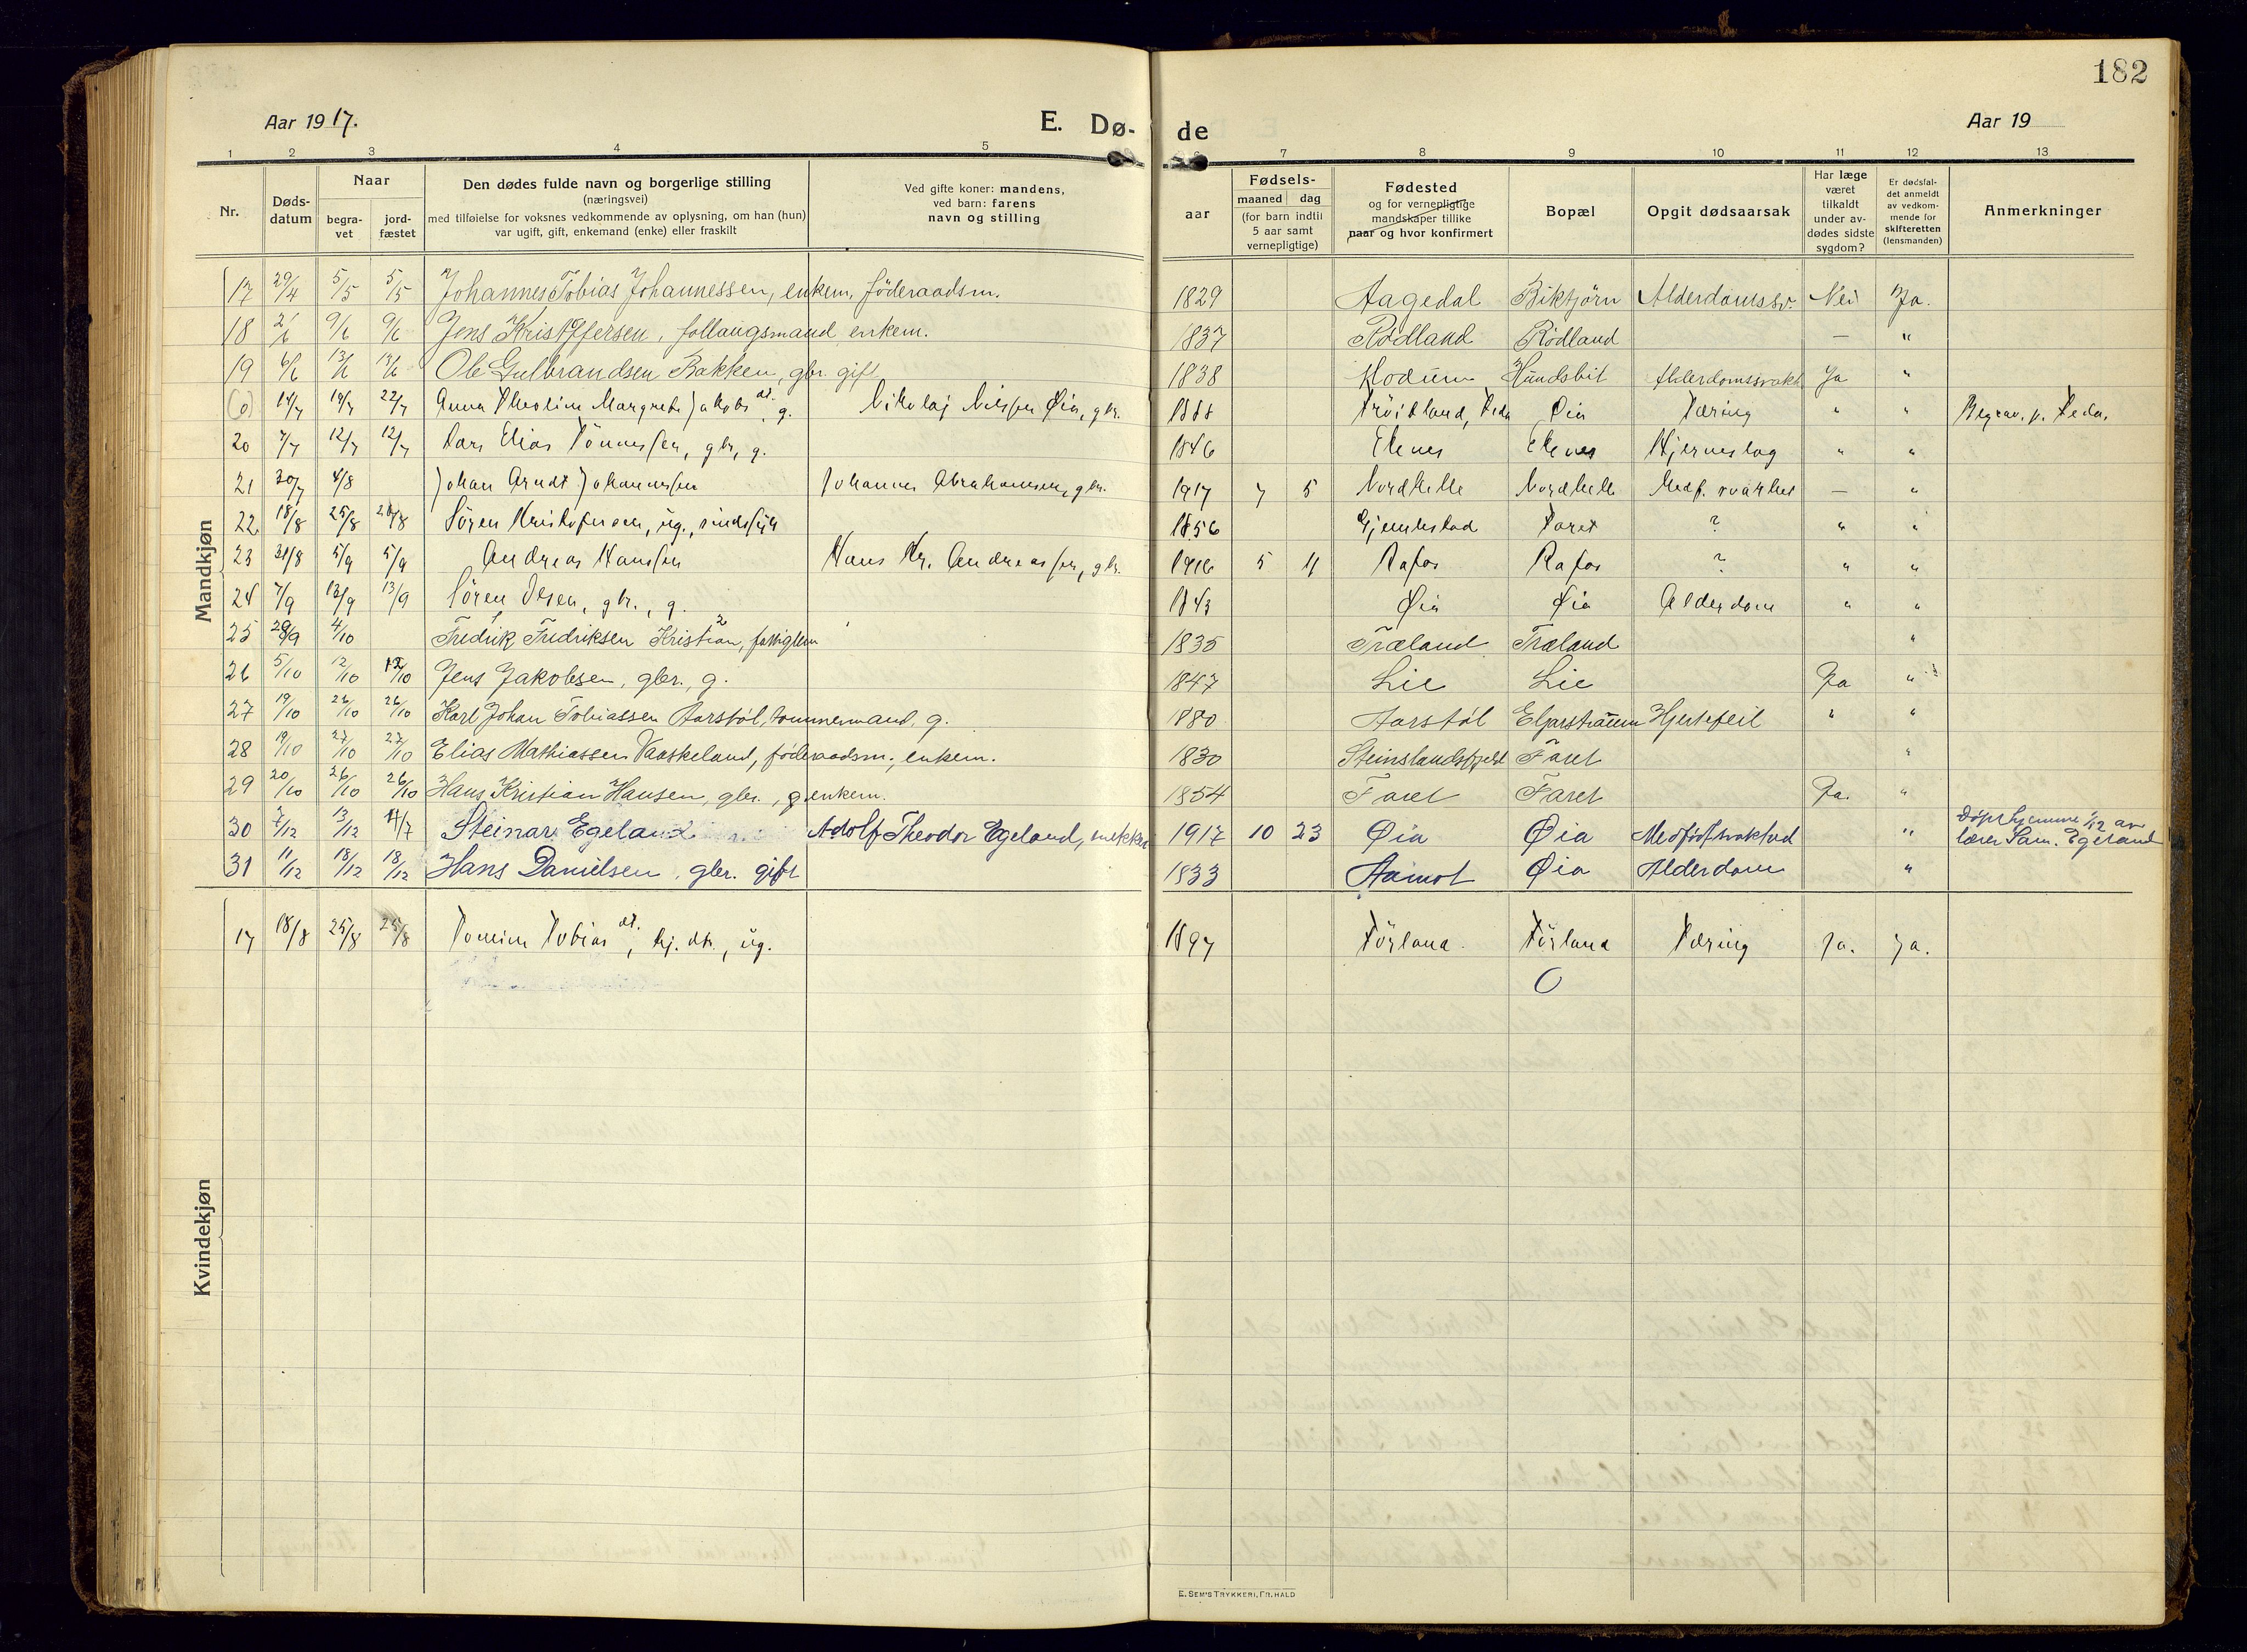 182
Aar 1917.
E. Dø-
de
Aar 19
1 2 3 4 5
7 8 9 10 11 12 13
Nr.
Døds-
datum
Naar
begra-
vet
jord-
fæstet
Den dødes fulde navn og borgerlige stilling
(næringsvei)
med tilføielse for voksnes vedkommende av oplysning, om han (hun)
var ugift, gift, enkemand (enke) eller fraskilt
Ved gifte koner: mandens,
ved barn: farens
navn og stilling
Fødsels-
aar
maaned dag
(for barn indtil
5 aar samt
vernepligtige)
Fødested
og for vernepligtige
mandskaper tillike
naar og hvor konfirmert
Bopæl
Opgit dødsaarsak
Har læge
været
tilkaldt
under av-
dødes sidste
sygdom?
Er dødsfal-
det anmeldt
av vedkom-
mende for
skifteretten
(lensmanden)
Anmerkninger
Mandkjøn
17 29/4 5/5 5/5 Johannes Tobias Johannessen, enkem, föderaadsm. 1829 Aagedal Birktjörn Alderdomssv. Nei Ja.
18 2/6 9/6 9/6 Jens Kristoffersen, enkem. 1837 Rödland Rödland — "
19 6/6 13/6 13/6 Ole Gulbrandsen Bakken, gbr. gift 1838 Modum Hundsbit Alderdomssvakh Ja "
(0) 14/7 19/7 22/7 Anna Theoline Margrete Jakobs dt. g. Nikolaj Nilssen Øia, gbr. 1888 Øia Tæring " " Begrav. p. Feda.
20 7/7 12/7 12/7 Lars Elias Tönnessen, gbr, g. 1846 Ekenes Ekenes Hjerneslag " "
21 30/7 4/8 Johan Arndt Johannessen Johannes Abrahamsen, gbr. 1917 7 5 Nordhelle Nordhelle Medf. svakhet — "
22 18/8 25/8 Sören Kristofersen, ug., sindssyk 1856 Gjemlestad Faret ? " "
23 31/8 5/9 5/9 Andreas Hanssen Hans Kr. Andreassen, gbr. 1916 5 11 Rafos Rafos ? " "
24 7/9 13/9 13/9 Sören Olsen, gbr., g. 1843 Øia Øia Alderdom " "
25 29/9 4/10 Fredrik Fredriksen Kristian, fattiglem 1835 Træland Træland "
26 5/10 12/10 12/10 Jens Jakobsen, gbr., g. 1847 Lie Lie Ja "
27 19/10 26/10 26/10 Karl Johan Tobiassen Aarstöl, tömmermand, g. 1880 Aarstöl Eljarstraum Hjertefeil " "
28 19/10 27/10 27/10 Elias Mathiassen Vaaskeland, föderaadsm., enkem. 1830 Steinslandsfjeld Faret "
29 20/10 26/10 26/10 Hans Kristian Hansen, gbr., g. enkem. 1854 Faret Faret Ja. "
30 7/12 13/12 Steinar Egeland Adolf Theodor Egeland, 1917 10 23 Øia Øia Medfödt svakhed " Döpt hjemme 1/12 av
lærer Sam. Egeland
31 11/12 18/12 18/12 Hans Danielsen, gbr. gift 1833 Aamot Øia Alderdom "
Kvindekjøn
17 18/8 25/8 25/8 Tomine Tobias dt., hj. dtr., ug. 1897 Förland Förland Tæring Ja. Ja.
E. SEM'S TRYKKERI, FR.HALD